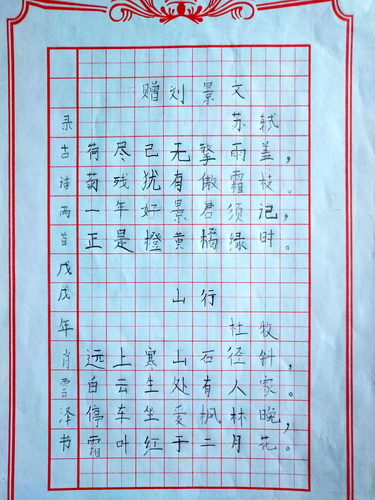 赠刘景文
苏轼
荷尽已无擎雨盖，
菊残犹有傲霜枝。
一年好景君须记，
正是橙黄橘绿时。
山行
杜牧
远上寒山石径斜，
白云生处有人家。
停车坐爱枫林晚，
霜叶红于二月花。
录古诗两首戊戌年肖雲泽书